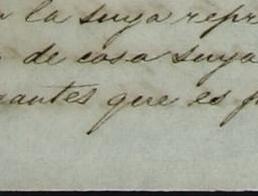 la suya repr
de cosa suya
gantes que es p